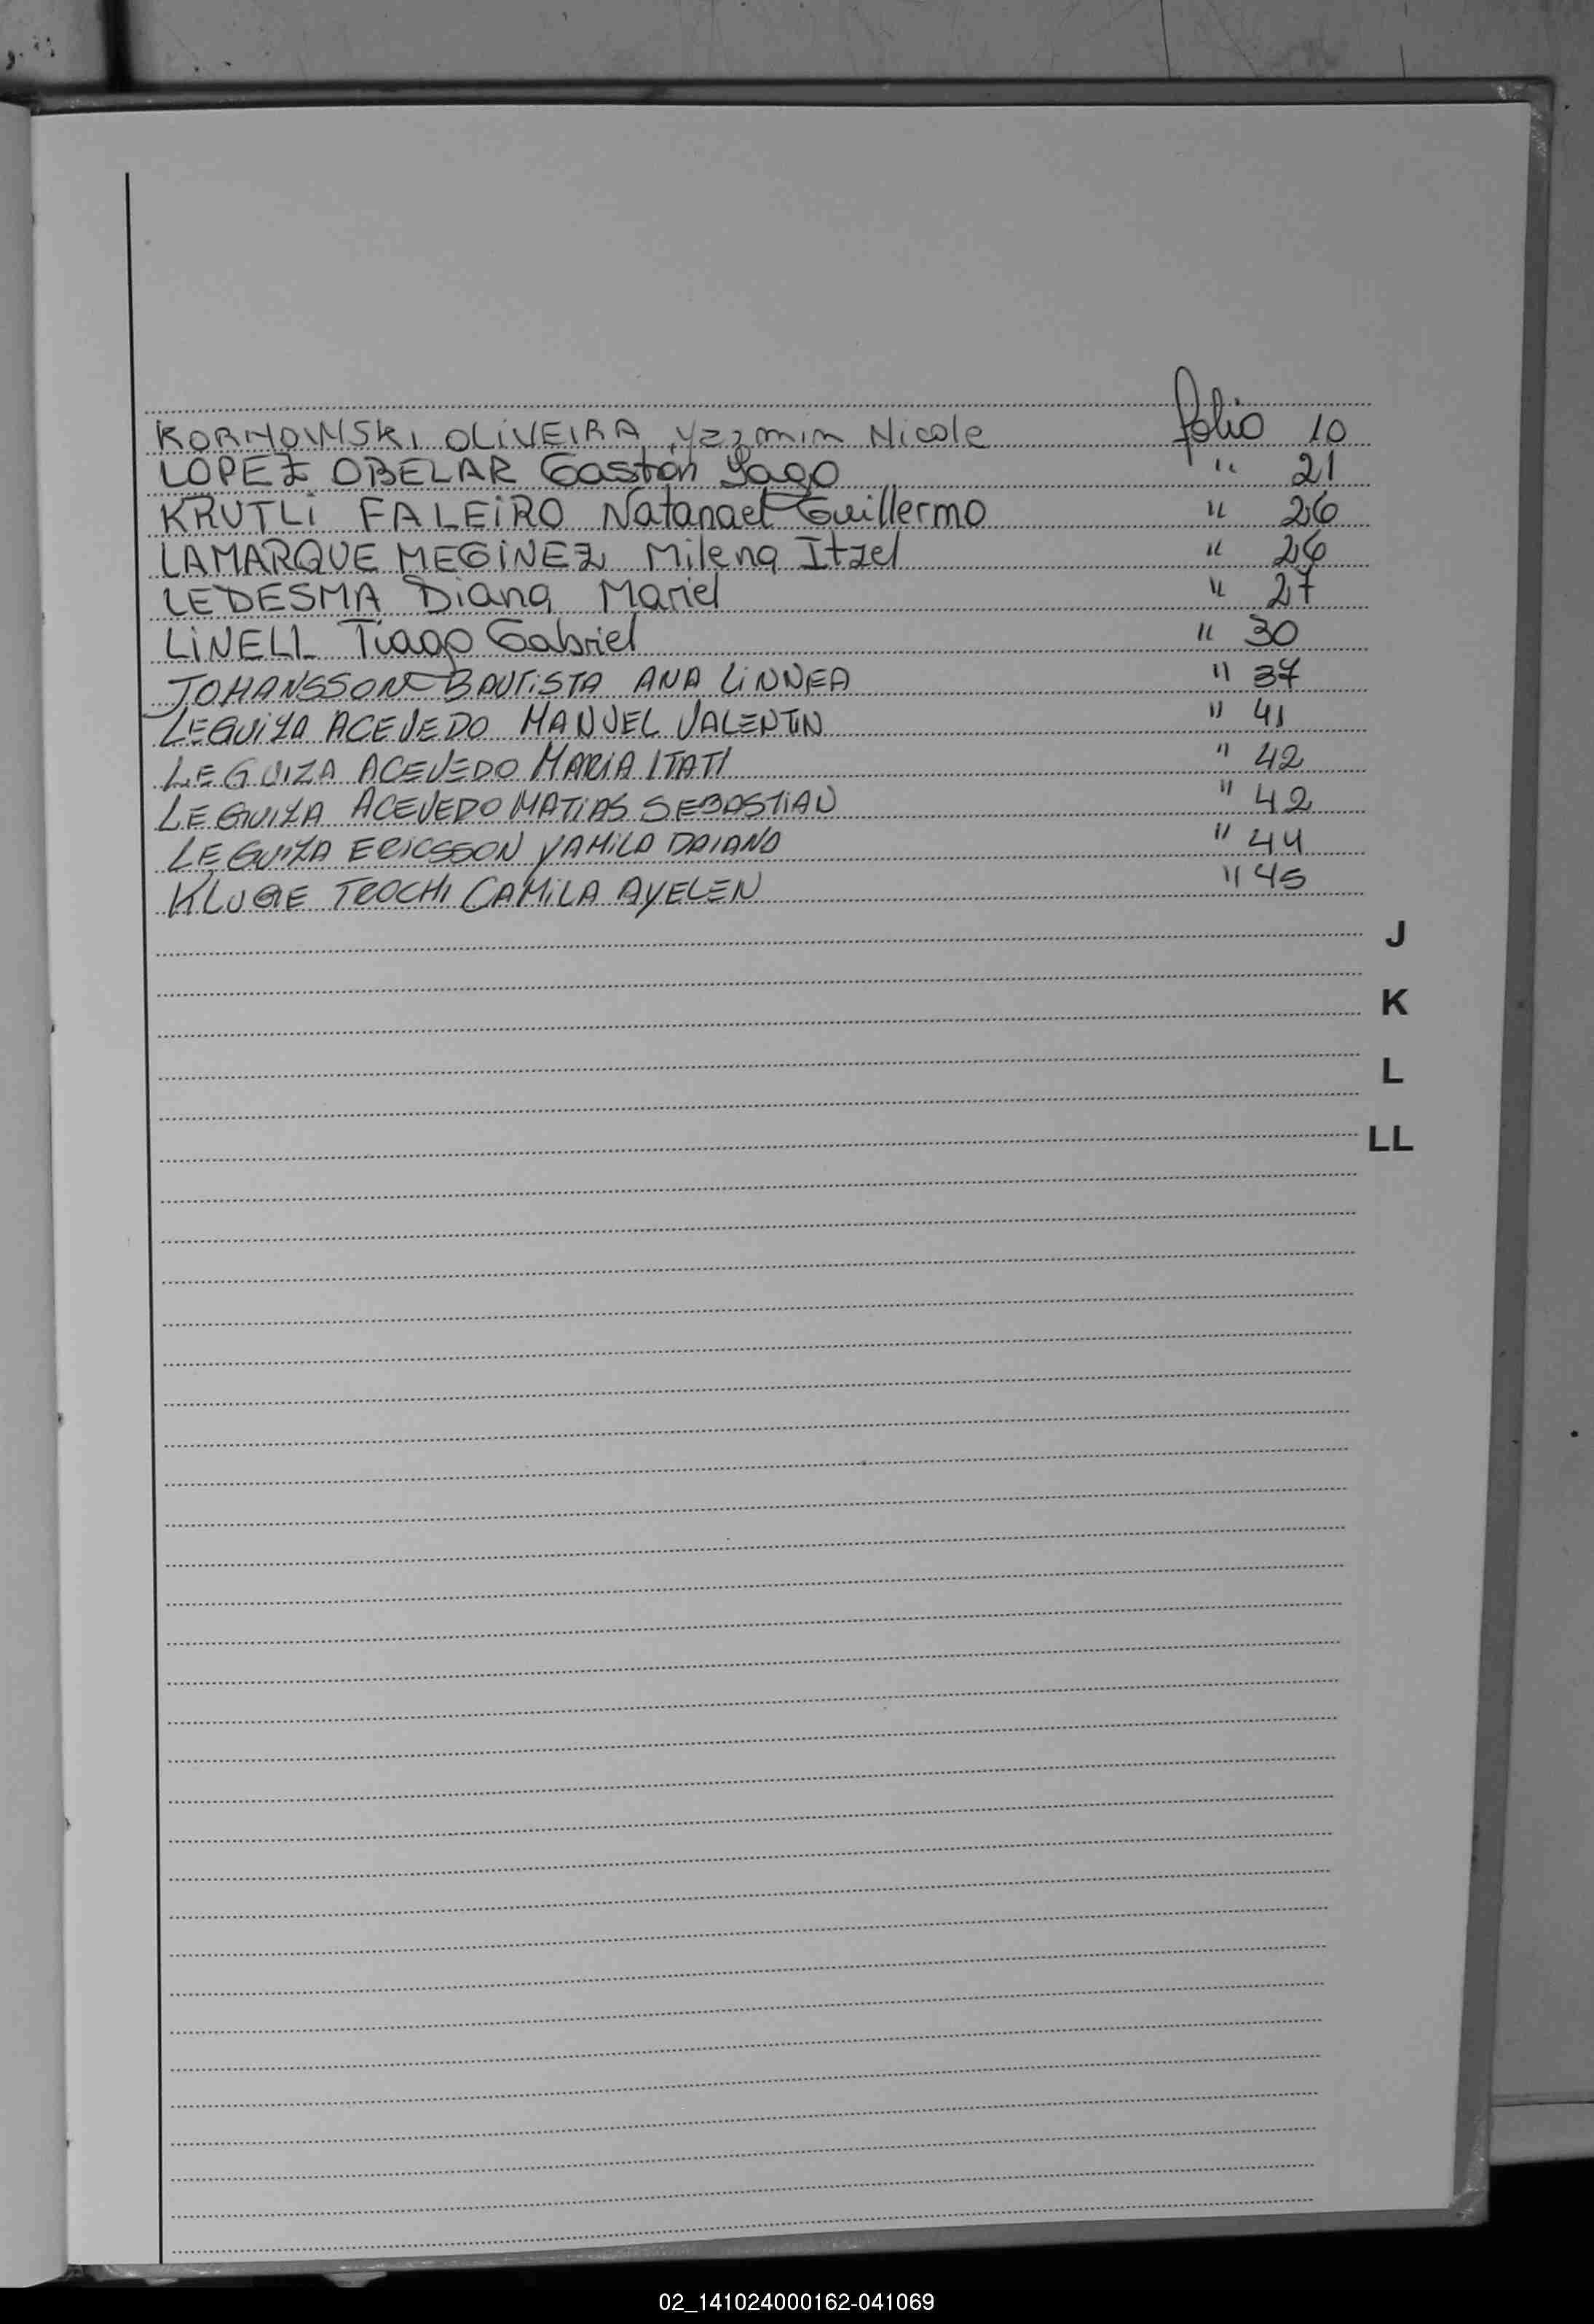 KORNOWSKI OLIVEIRA Yazmin Nicole folio 10
LOPEZ OBELAR Gastón Yago " 21
KRUTLi FALEiRO Natanael Guillermo " 26
LAMARQUE MEGiNEZ Milena Itzel " 26
LEDESMA Diana Mariel " 27
LiNELL Tiago Gabriel " 30
JOHANSSON BAUTiSTA ANA LiNNEA " 37
LEGUiZA ACEVEDO MANUEL VALENTiN " 41
LEGUIZA ACEVEDO MARIA ITATI " 42
LEGUIZA ACEVEDO MATiAS SEBASTiAN " 42
LEGUIZA ERICSSON YAMiLA DAIANA " 44
KLUGE TROCHI CAMiLA AYELEN " 45
J
K
L
LL
02_141024000162-041069